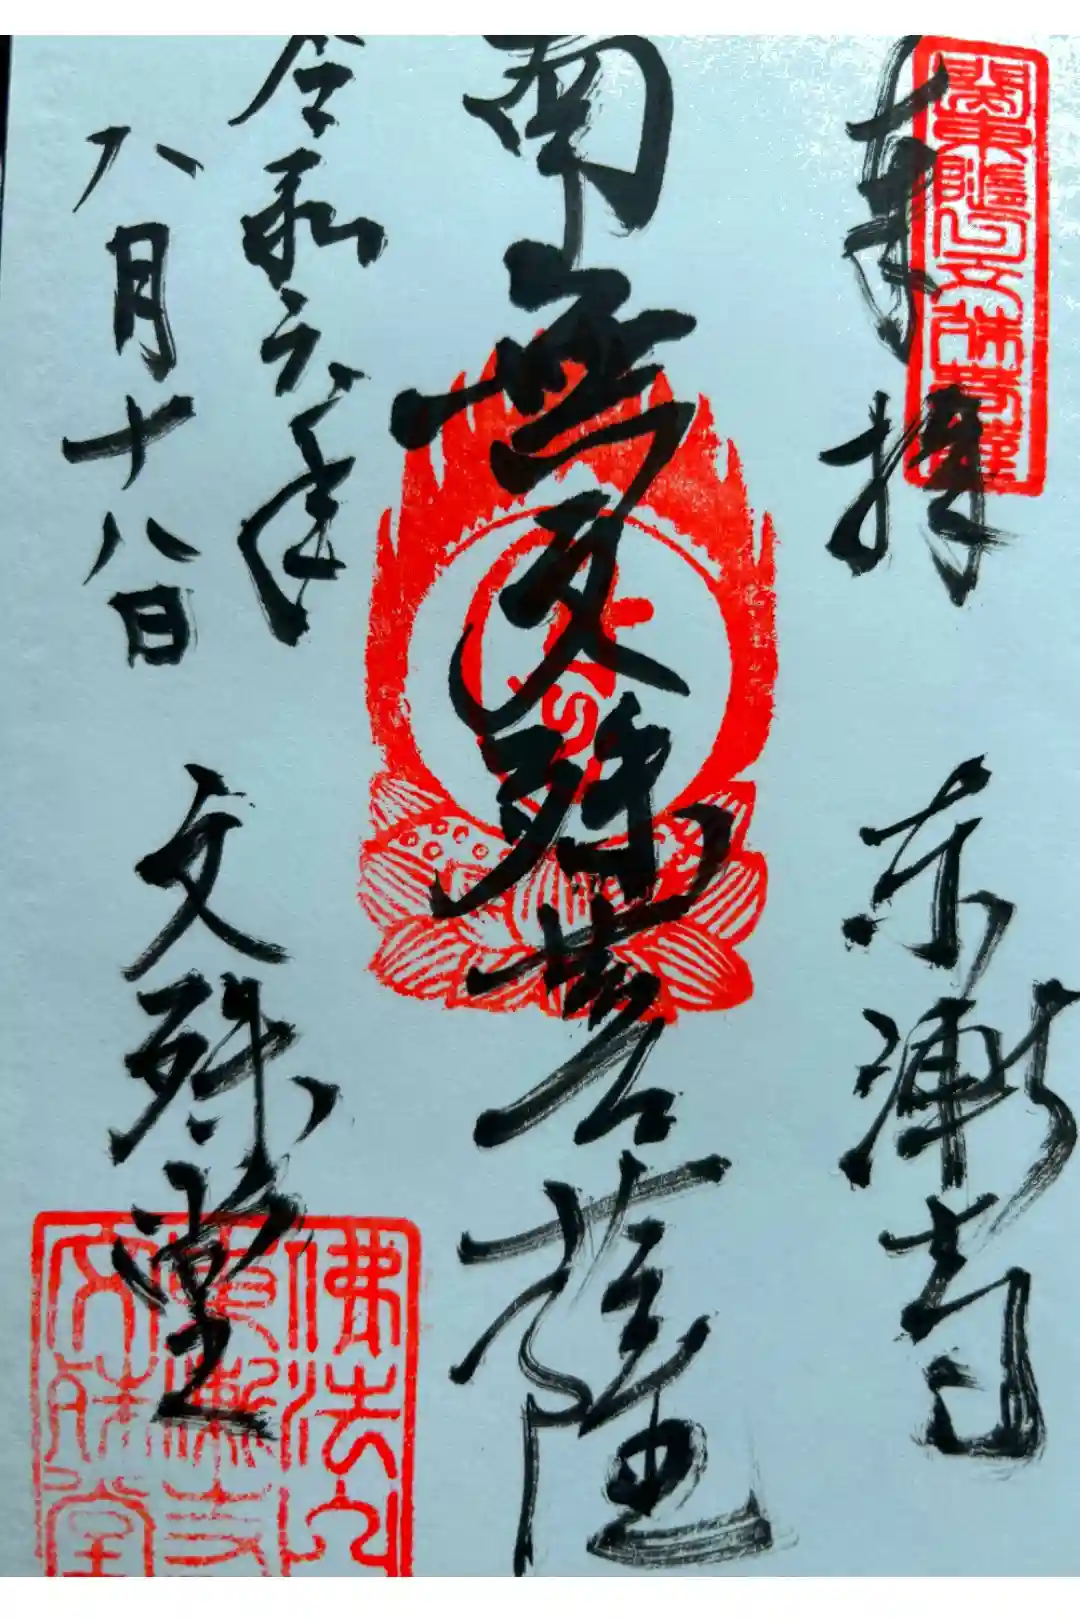 奉拝 東漸寺
關東臨江文殊菩薩
南無文殊菩薩
令和六年
八月十八日
文殊堂
佛法山
東漸寺
文殊堂